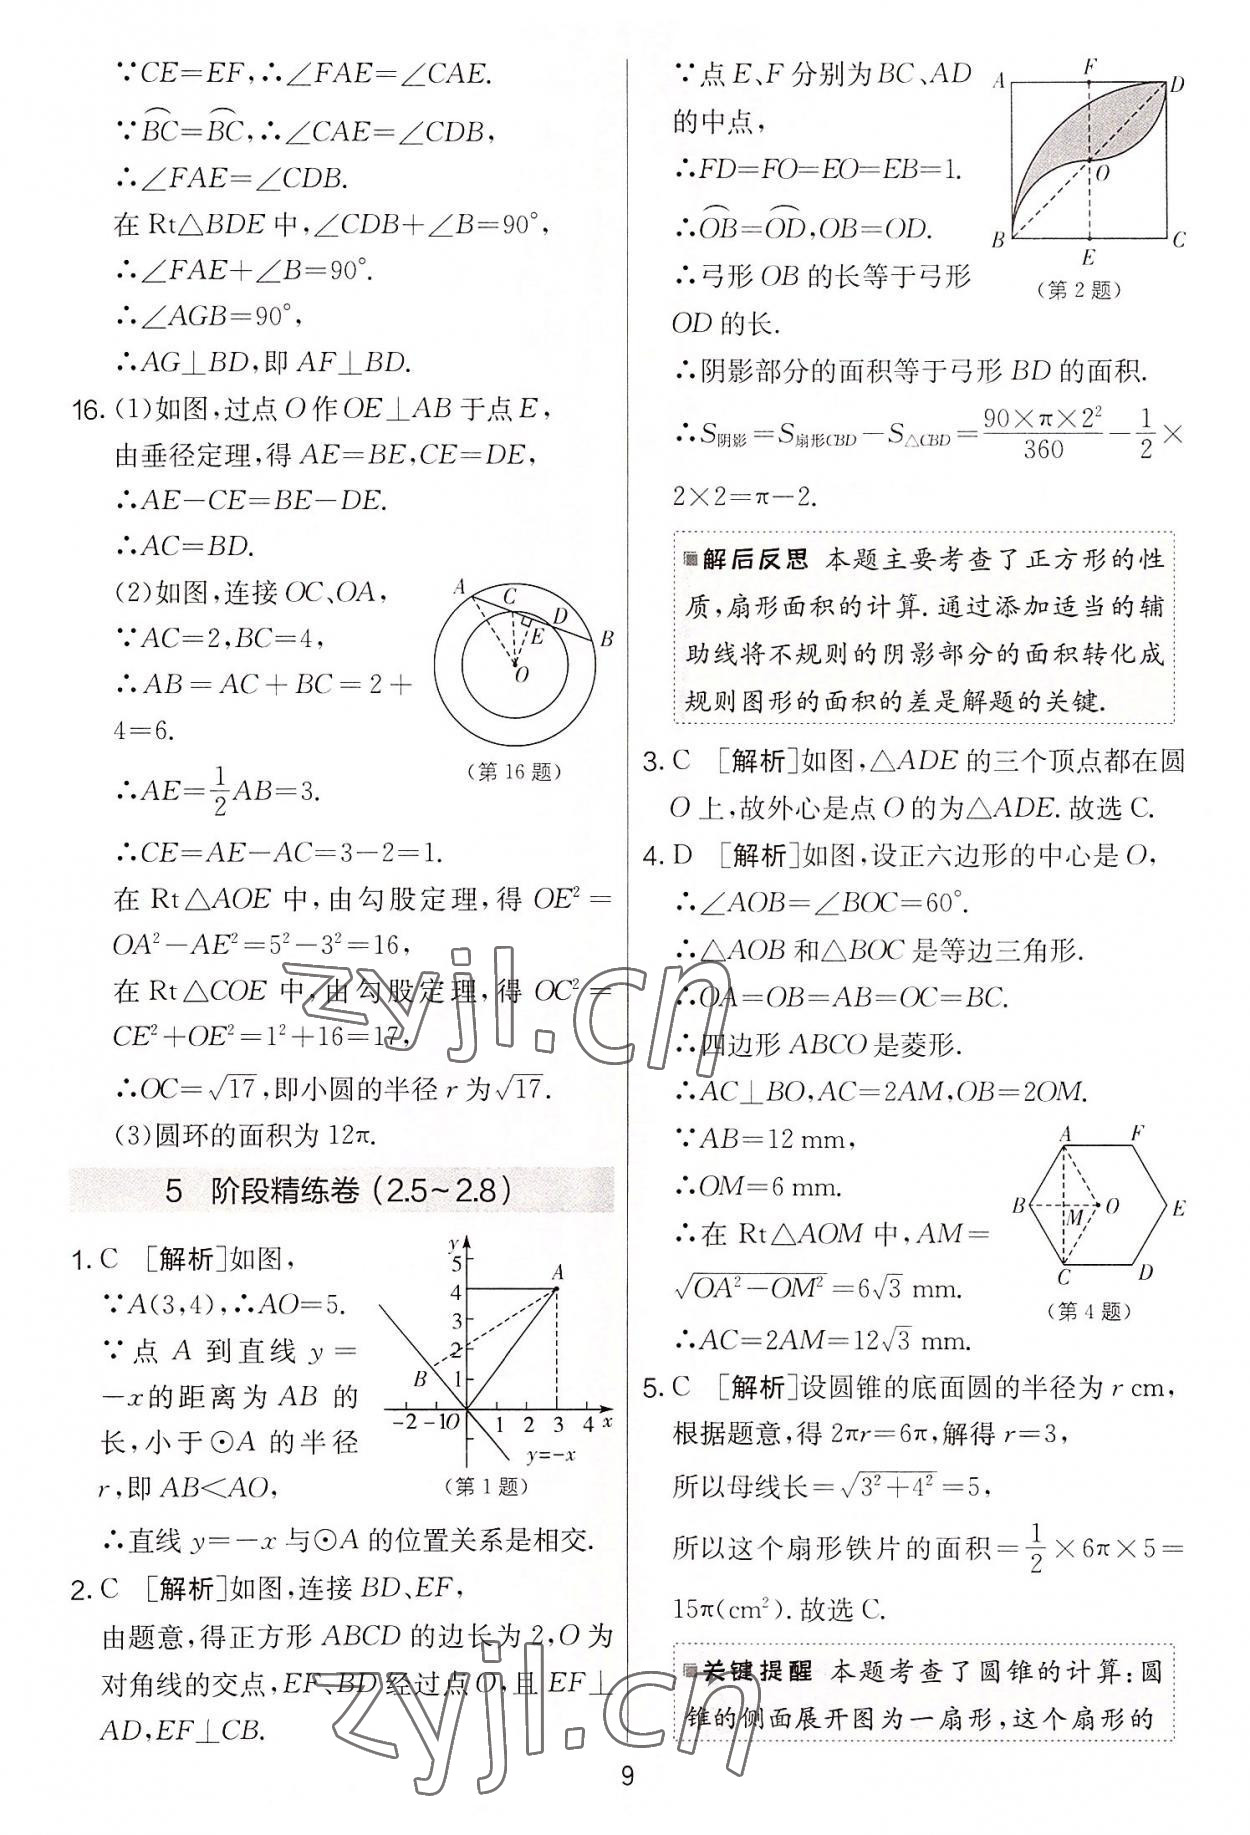 ∵CE=EF,∴∠FAE=∠CAE.
∵⌒BC=⌒BC,∴∠CAE=∠CDB,
∴∠FAE=∠CDB.
在 Rt△BDE 中,∠CDB+∠B=90°,
∴∠FAE+∠B=90°.
∴∠AGB=90°,
∴AG⊥BD,即 AF⊥BD.
16. (1)如图,过点 O 作 OE⊥AB 于点 E,
由垂径定理,得 AE=BE,CE=DE,
∴AE-CE=BE-DE.
∴AC=BD.
(2)如图,连接 OC、OA,
∵AC=2,BC=4,
∴AB=AC+BC=2+
4=6.
A C D B E O
(第 16 题)
∴AE=1/2 AB=3.
∴CE=AE-AC=3-2=1.
在 Rt△AOE 中,由勾股定理,得 OE²=
OA²-AE²=5²-3²=16,
在 Rt△COE 中,由勾股定理,得 OC²=
CE²+OE²=1²+16=17,
∴OC=√17,即小圆的半径 r 为√17.
(3)圆环的面积为 12π.
5 阶段精练卷(2.5~2.8)
1. C [解析]如图,
∵A(3,4),∴AO=5.
∵点 A 到直线 y=
-x的距离为 AB 的
长,小于⊙A 的半径
r,即 AB<AO,
y 5 4 3 2 1 A B
-2 -1 O 1 2 3 4 x
y=-x
(第 1 题)
∴直线 y=-x 与⊙A 的位置关系是相交.
2. C [解析]如图,连接 BD、EF,
由题意,得正方形 ABCD 的边长为 2,O 为
对角线的交点,EF、BD 经过点 O,且 EF⊥
AD,EF⊥CB.
∵点 E、F 分别为 BC、AD
的中点,
∴FD=FO=EO=EB=1.
∴⌒OB=⌒OD,OB=OD.
∴弓形 OB 的长等于弓形
OD 的长.
A F D O B E C
(第 2 题)
∴阴影部分的面积等于弓形 BD 的面积.
∴S阴影=S扇形CBD-S△CBD=90×π×2²/360-1/2×
2×2=π-2.
解后反思 本题主要考查了正方形的性
质,扇形面积的计算.通过添加适当的辅
助线将不规则的阴影部分的面积转化成
规则图形的面积的差是解题的关键.
3. C [解析]如图,△ADE 的三个顶点都在圆
O 上,故外心是点 O 的为△ADE.故选 C.
4. D [解析]如图,设正六边形的中心是 O,
∴∠AOB=∠BOC=60°.
∴△AOB 和△BOC 是等边三角形.
∴OA=OB=AB=OC=BC.
∴四边形 ABCO 是菱形.
∴AC⊥BO,AC=2AM,OB=2OM.
∵AB=12 mm,
∴OM=6 mm.
∴在 Rt△AOM 中,AM=
√(OA²-OM²)=6√3 mm.
∴AC=2AM=12√3 mm.
A F B M O E C D
(第 4 题)
5. C [解析]设圆锥的底面圆的半径为 r cm,
根据题意,得 2πr=6π,解得 r=3,
所以母线长=√(3²+4²)=5,
所以这个扇形铁片的面积=1/2×6π×5=
15π(cm²).故选 C.
关键提醒 本题考查了圆锥的计算:圆
锥的侧面展开图为一扇形,这个扇形的
9
zyjl.cn
zyjl.cn